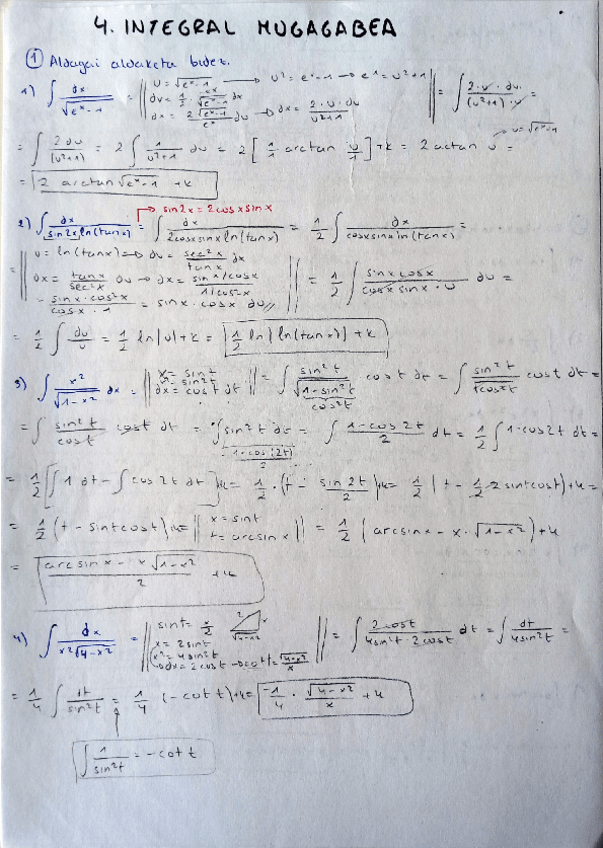 4. INTEGRAL MUGAGABEA
① Aldagai aldaketa bidez.
1) ∫ dx/√(eˣ-1) = ‖ u = √(eˣ-1) → u² = eˣ-1 → eˣ = u²+1 ‖ = ∫ 2·u·du/((u²+1)·u) =
du = 1/2 · eˣ/√(eˣ-1) dx
dx = 2√(eˣ-1)/eˣ du → dx = 2·u·du/(u²+1)
= ∫ 2du/(u²+1) = 2 ∫ 1/(u²+1) du = 2 [1/1 arctan u/1] + k = 2 actan u =
u = √(eˣ-1)
= 2 arctan √(eˣ-1) + k
2) ∫ dx/(sin2x ln(tanx)) = ∫ dx/(2cosxsinx ln(tanx)) = 1/2 ∫ dx/(cosxsinx ln(tanx)) =
→ sin2x = 2cosxsinx
u = ln(tanx) → du = sec²x/tanx dx
dx = tanx/sec²x du → dx = (sinx/cosx)/(1/cos²x)
= sinx·cos²x/(cosx·1) = sinx·cosx du ‖ = 1/2 ∫ sinxcosx/(cosx sinx·u) du =
= 1/2 ∫ du/u = 1/2 ln|u| + k = 1/2 ln|ln(tanx)| + k
3) ∫ x²/√(1-x²) dx = ‖ x = sint ‖ = ∫ sin²t/√(1-sin²t) cost dt = ∫ sin²t/√cos²t cost dt =
x² = sin²t
dx = cost dt
cos²t
= ∫ sin²t/cost cost dt = ∫ sin²t dt = ∫ (1-cos2t)/2 dt = 1/2 ∫ 1-cos2t dt =
1-cos(2t)/2
= 1/2 [∫ 1 dt - ∫ cos2t dt] + k = 1/2 · (t - sin2t/2) + k = 1/2 (t - 1/2 2sintcost) + k =
= 1/2 (t - sintcost) + k = ‖ x = sint
t = arcsinx ‖ = 1/2 (arcsinx - x·√(1-x²)) + k
= (arcsinx - x√(1-x²))/2 + k
4) ∫ dx/(x²√(4-x²)) = ‖ sint = x/2 2 x √(4-x²) ‖ = ∫ 2cost/(4sin²t·2cost) dt = ∫ dt/(4sin²t) =
x = 2sint
x² = 4sin²t
dx = 2cost → cot t = √(4-x²)/x
= 1/4 ∫ dt/sin²t = 1/4 (-cot t) + k = -1/4 · √(4-x²)/x + k
∫ 1/sin²t = -cot t